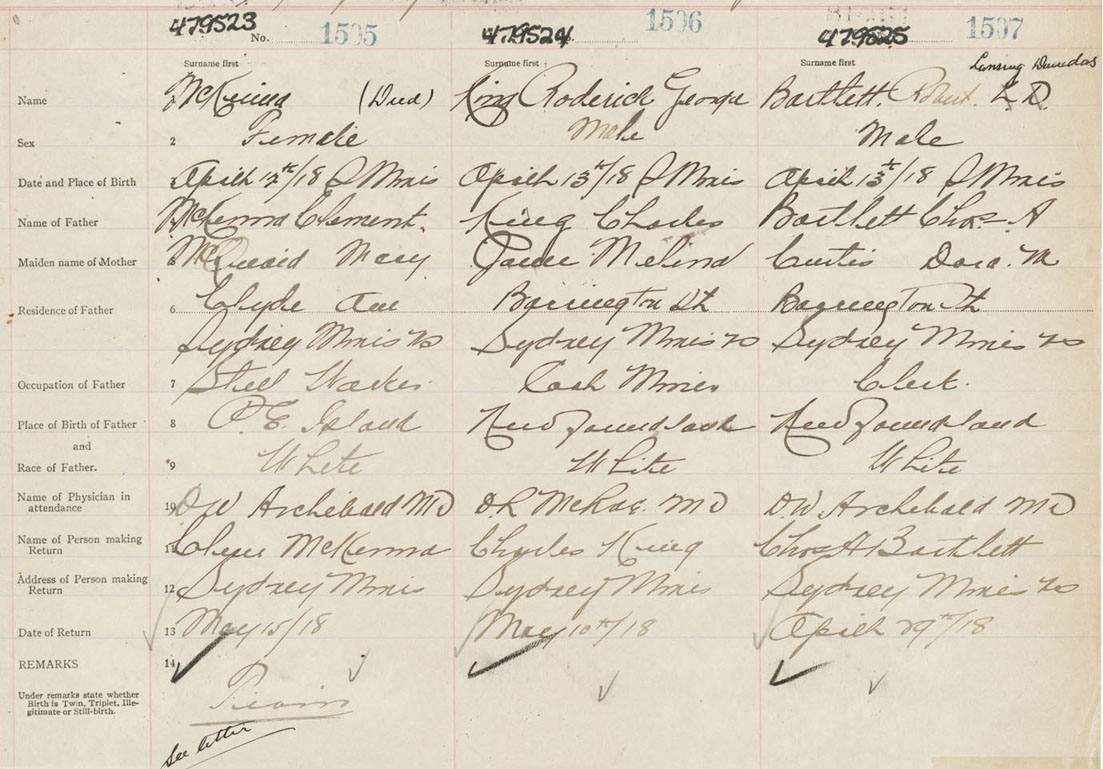 479523 No. 1505 479524 1506 479525 1507
Surname first Surname first Surname first Lansing Dauedas
Name McKenna (Died) King Roderick George Bartlett Robert L D.
Sex 2 Female Male Male
Date and Place of Birth April 12th/18 S Mines April 13th/18 S Mines April 13th/18 S Mines
Name of Father McKenna Clement. King Charles Bartlett Chas. A
Maiden name of Mother McQuaid Mary Melind Curtis Dora. M
Residence of Father 6 Clyde Ave Barrington St Barrington St
Sydney Mines NS Sydney Mines NS Sydney Mines NS
Occupation of Father 7 Steel Worker Coal Miner Clerk.
Place of Birth of Father 8 P. E. Island Newfoundland Newfoundland
and
Race of Father. 9 White White White
Name of Physician in
attendance 10 D W Archibald MD D.R McRae. MD D.W Archibald MD
Name of Person making
Return 11 Clem McKenna Charles King Chas A Bartlett
Address of Person making
Return 12 Sydney Mines Sydney Mines Sydney Mines NS
Date of Return 13 May 15/18 May 10th/18 April 29th/18
REMARKS 14
Under remarks state whether
Birth is Twin, Triplet, Ille-
gitimate or Still-birth.
Twin
See letter